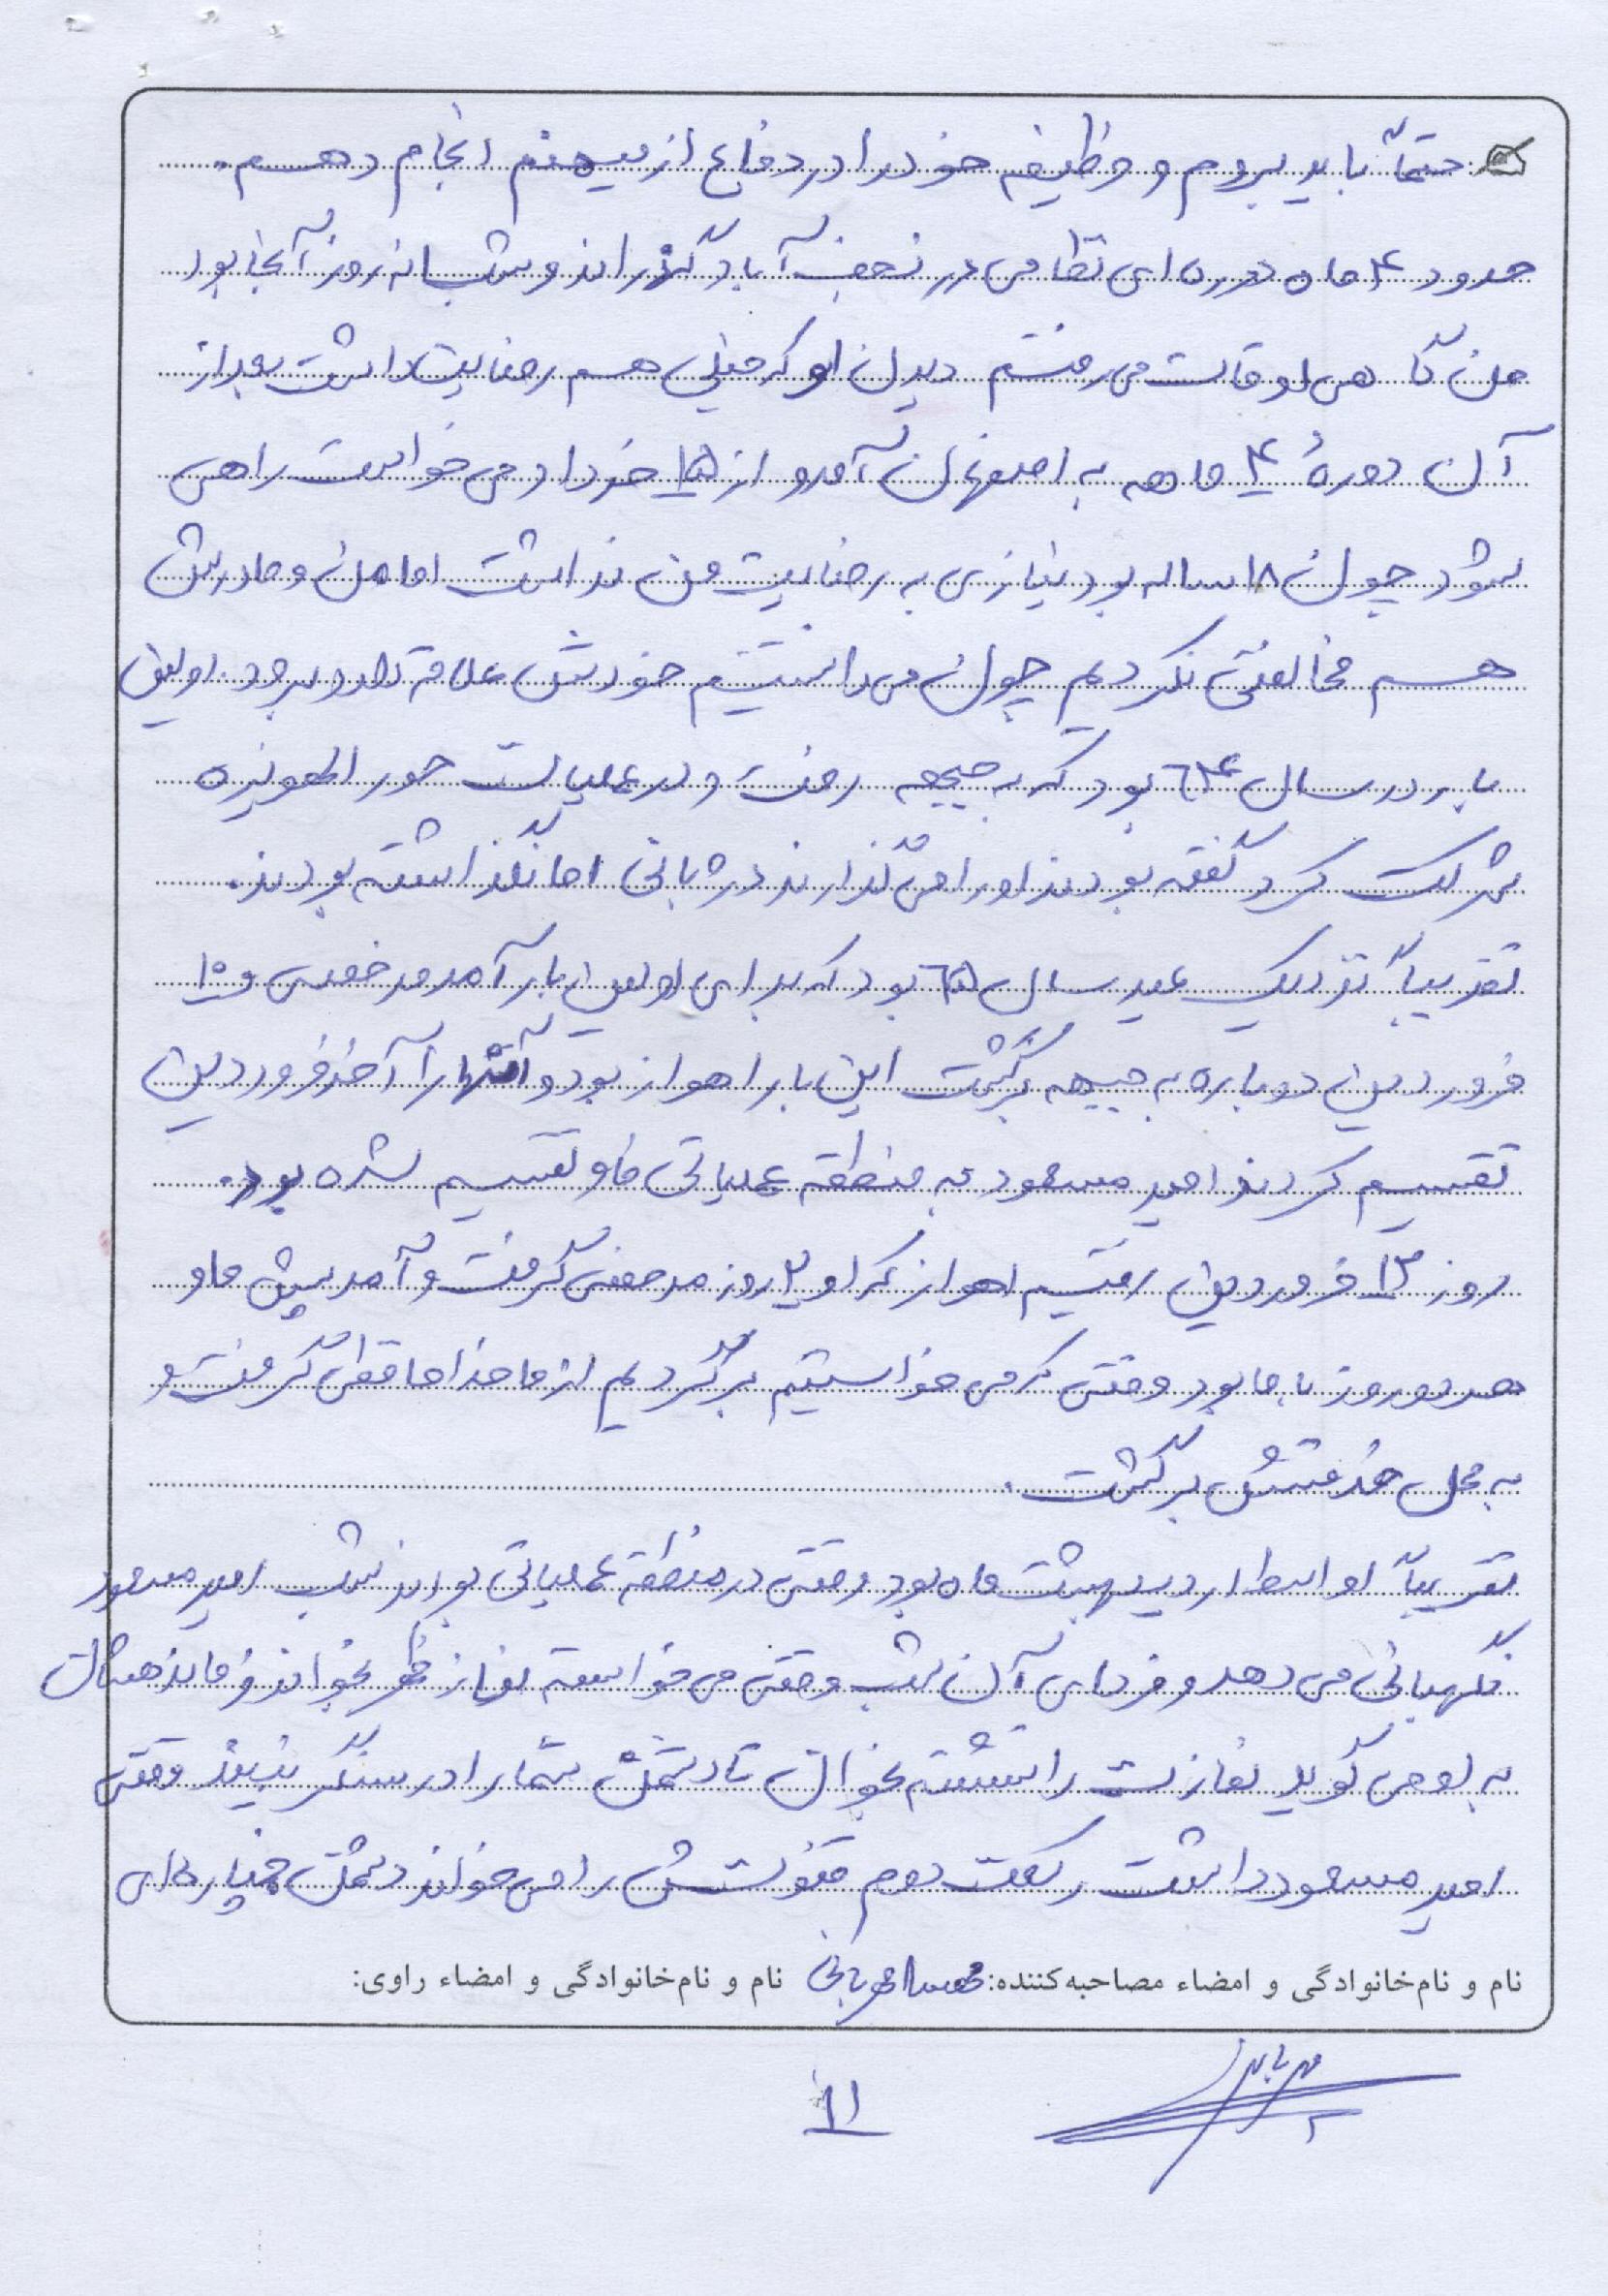 حتماً باید بروم و وظیفه خود را در دفاع از میهنم انجام دهم.
حدود ۴ ماه دوره ای نظامی در نجف آباد گذراند و شبانه روز آنجا بود
من گاهی اوقات می رفتم دیدن او که خیلی هم رضایت داشت بعد از
آن دورهٔ ۴ ماهه به اصفهان آمد و از ۱۵ خرداد می خواست راهی
شود چون ۱۸ ساله بود نیازی به رضایت من نداشت اما من و مادرش
هم مخالفتی نکردیم چون می دانستیم خودش علاقه دارد برود. اولین
بار در سال ۶۴ بود که به جبهه رفت و در عملیات حور الهویزه
شرکت کرد گفته بودند او را می گذارند دژبانی اما نگذاشته بودند.
تقریباً نزدیک عید سال ۶۵ بود که برای اولین بار آمد مرخصی و ۱۵
فروردین دوباره به جبهه برگشت این بار اهواز بود و آنها را آخر فروردین
تقسیم کردند امیر مسعود به منطقه عملیاتی فاو تقسیم شده بود.
روز ۱۳ فروردین رفتیم اهواز که او ۲ روز مرخصی گرفت و آمد پیش ما و
هر دو روز با ما بود وقتی که می خواستیم برگردیم از ما خداحافظی گرفت و
به محل خدمتش برگشت.
تقریباً اواسط اردیبهشت ماه بود وقتی در منطقه عملیاتی بودند شب امیر مسعود
نگهبانی می دهد و فردای آن شب وقتی می خواسته نماز ظهر بخواند فرمانده شان
به او می گوید نمازت را نشسته بخوان تا دشمن شما را در سنگر نبیند وقتی
امیر مسعود داشت رکعت دوم قنوتش را می خواند دشمن خمپاره ای
نام و نام‌خانوادگی و امضاء مصاحبه‌کننده: نام و نام‌خانوادگی و امضاء راوی:
۱۱